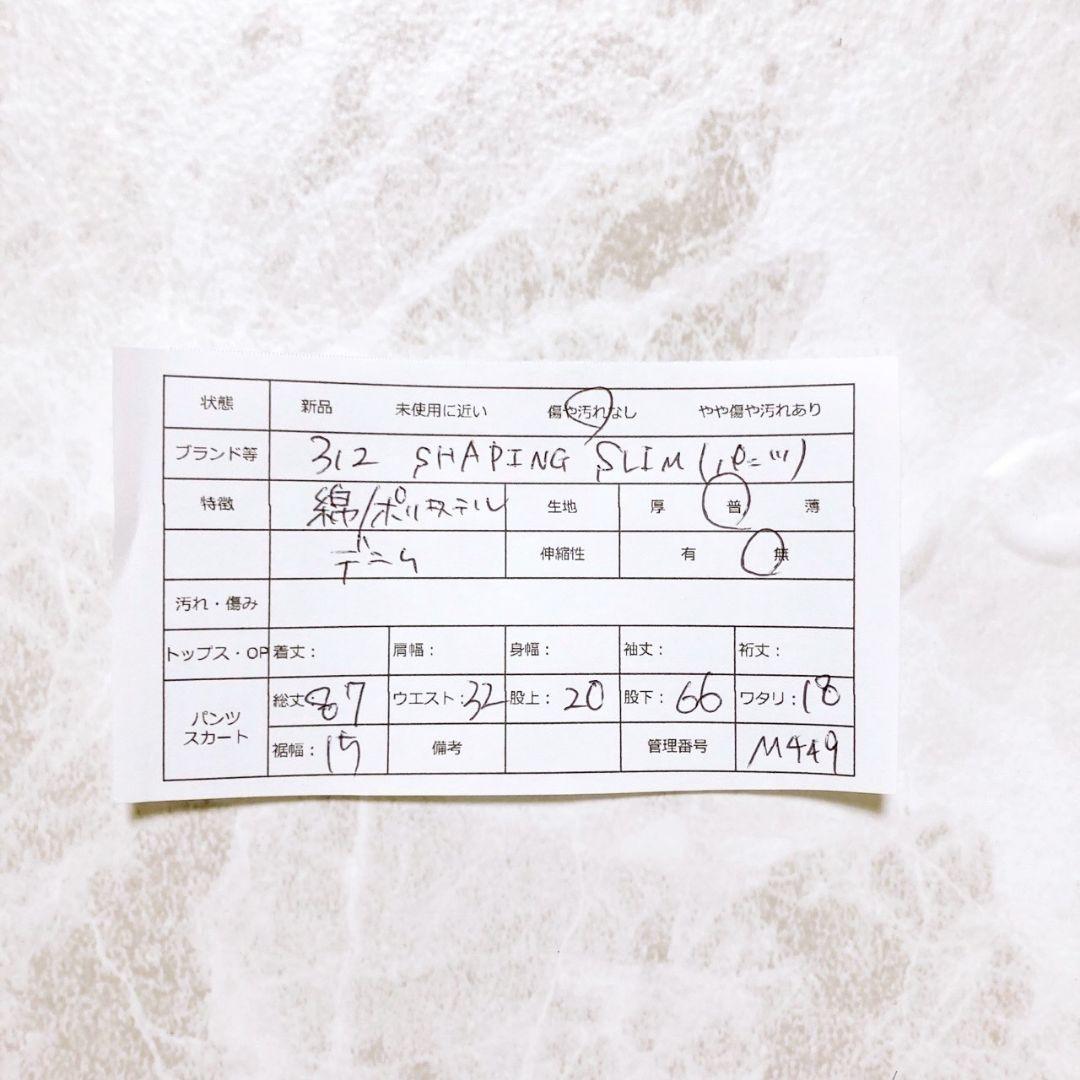 状態 新品 未使用に近い 傷や汚れなし やや傷や汚れあり
ブランド等 312 SHAPING SLIM
特徴 綿/ポリエステル 生地 厚 普 薄
デニム 伸縮性 有 無
汚れ・傷み
トップス・OP 着丈: 肩幅: 身幅: 袖丈: 裄丈:
パンツ スカート 総丈:87 ウエスト:32 股上:20 股下:66 ワタリ:18
裾幅:15 備考 管理番号 M449